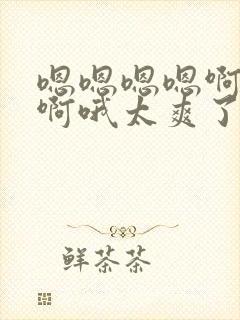 嗯嗯嗯嗯啊
啊哦太爽了
鲜茶茶